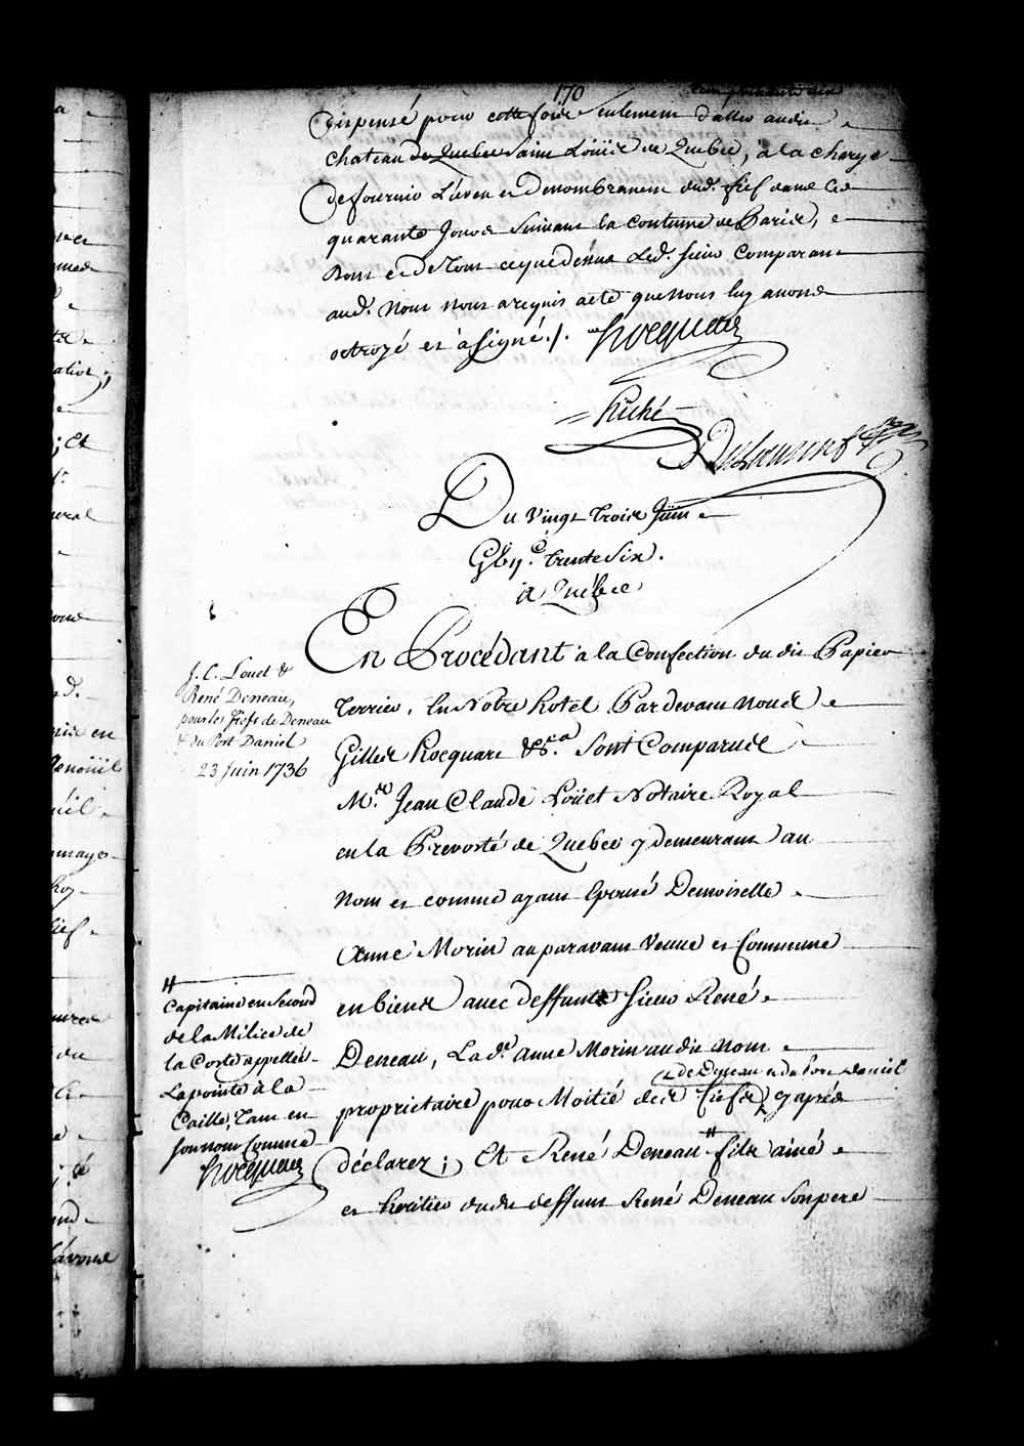 170
Dispensé pour cette foise seulement d'aller audit
Chateau de Quebec Saint Loüis de Quebec, à la charge
De fournir L'aveu et Denombrement dud. fief dans les
quarante Jours Suivant la Coutume de Paris,
Dont et De Tout ce que dessus Led. Sieur Comparant
aud. Nom nous a requis acte que nous luy avons
octroyé et à Signé ./.
hocquart
hiché
Du vingt trois Juin
Gbijc. trente Six.
à Québec
En Procédant à la Confection du dit Papier
Terrier, En Notre hotel Pardevant nous
Gilles hocquart &ca. Sont Comparus
Me. Jean Claude Loüet Notaire Royal
en la Prevosté de Quebec y demeurant au
Nom et comme ayant Epousé Demoiselle
Anne Morin auparavant Veuve et Commune
en biens avec deffunt Sieur René
Deneau, Lade. anne Morin audit nom
de Deneau et du Port Daniel
proprietaire pour Moitié des fiefs cy après
déclarez; Et René Deneau # fils ainé
et heritier dudit deffunt René Deneau Son pere
J. C. Louet &
René Deneau,
pour les fiefs de Deneau
& du Port Daniel
23 Juin 1736
#
Capitaine en Second
de la Milice de
la Coste appellée
Lapointe à la
Caille, Tant en
Son nom Comme
hocquart